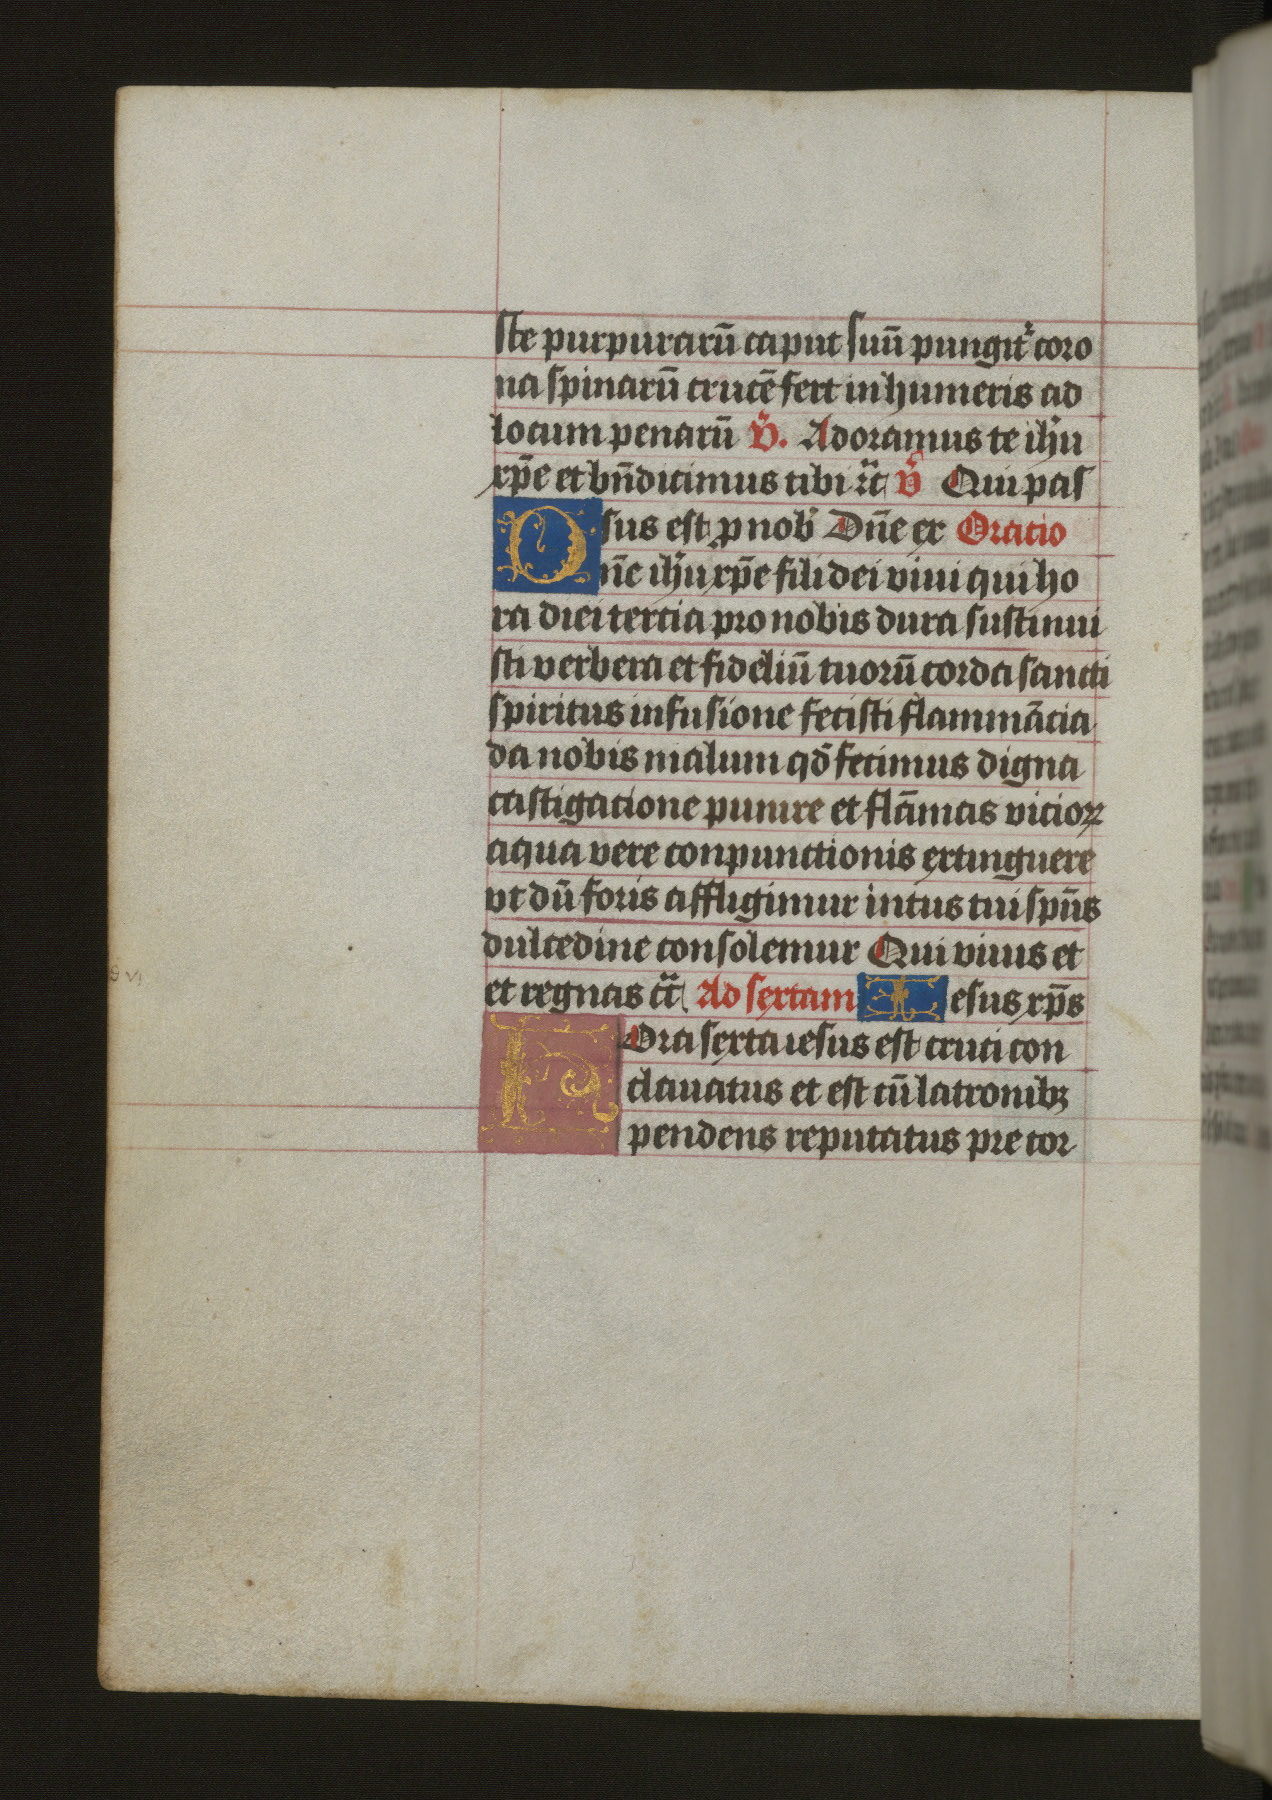 ste purpurarū caput suū pungit᷒ coro
na spinarū crucē fert in humeris ad
locum penarū V̄. Adoramus te ihū
xp̄e et bn̄dicimus tibi ꝛc̄ V̄ Qui pas
sus est ꝓ nob̄ Dn̄e ex Oratio
Dn̄e ihū xp̄e fili dei viui qui ho
ra diei tercia pro nobis dura sustinui
sti verbera et fideliū tuorū corda sancti
spiritus infusione fecisti flammācia
da nobis malum qd̄ fecimus digna
castigatione punire et flāmas vicioꝝ
aqua vere conpunctionis extinguere
vt dū foris affligimur intus tui spūs
dulcedine consolemur Qui viuis et
et regnas cc̄ Ad sextam Iesus xp̄s
Hora sexta iesus est cruci con
clauatus et est cū latronibꝫ
pendens reputatus pre tor